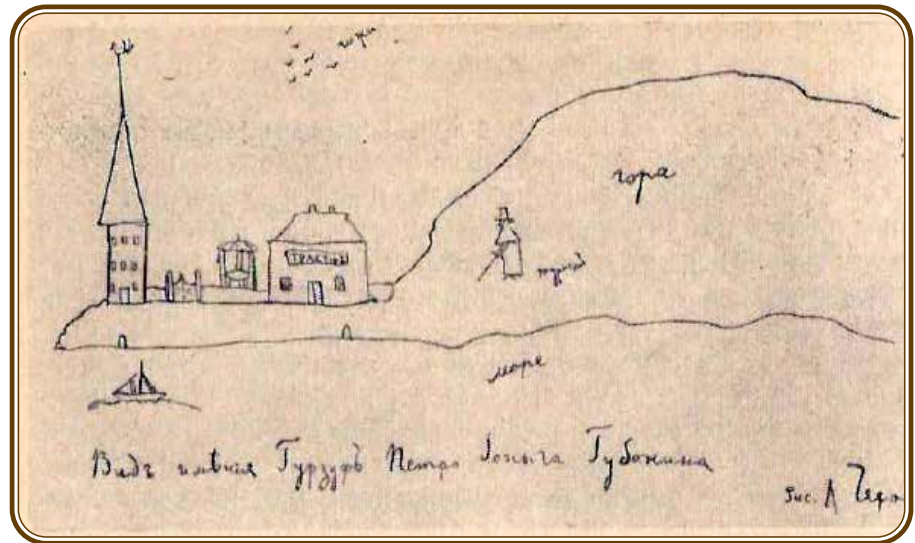 гора
ТРАКТИРЪ
море
Видъ имѣнія Гурзуфъ Петра Іоныча Губонина
Рис. А Чехо